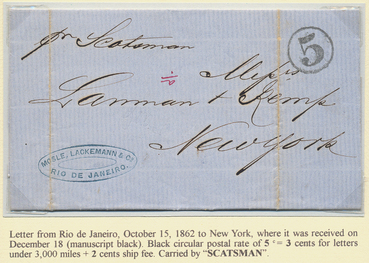 pr Scotsman
5
Messrs
Lanman & Kemp
New York
MOSLE, LACKEMANN & Co
RIO DE JANEIRO.
Letter from Rio de Janeiro, October 15, 1862 to New York, where it was received on
December 18 (manuscript black). Black circular postal rate of 5 ¢ = 3 cents for letters
under 3,000 miles + 2 cents ship fee. Carried by “SCATSMAN”.